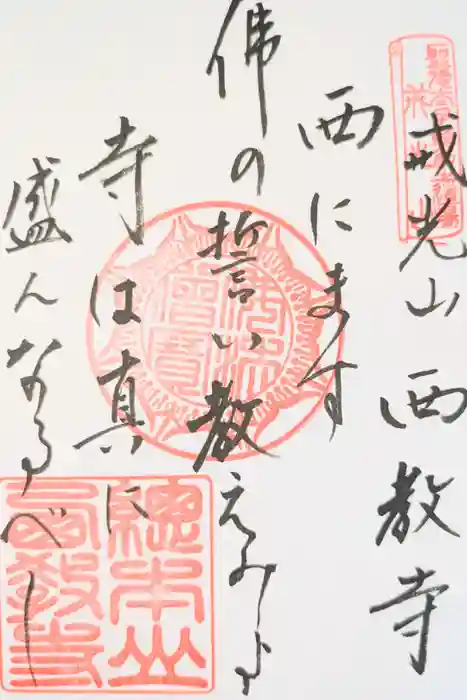 戒光山 西教寺
西にます
佛の誓い教えみよ
寺は真に
盛んなるべし
總本山
西教寺